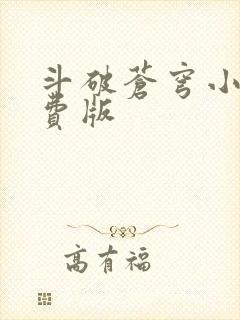 斗破苍穹小
費版
高有福